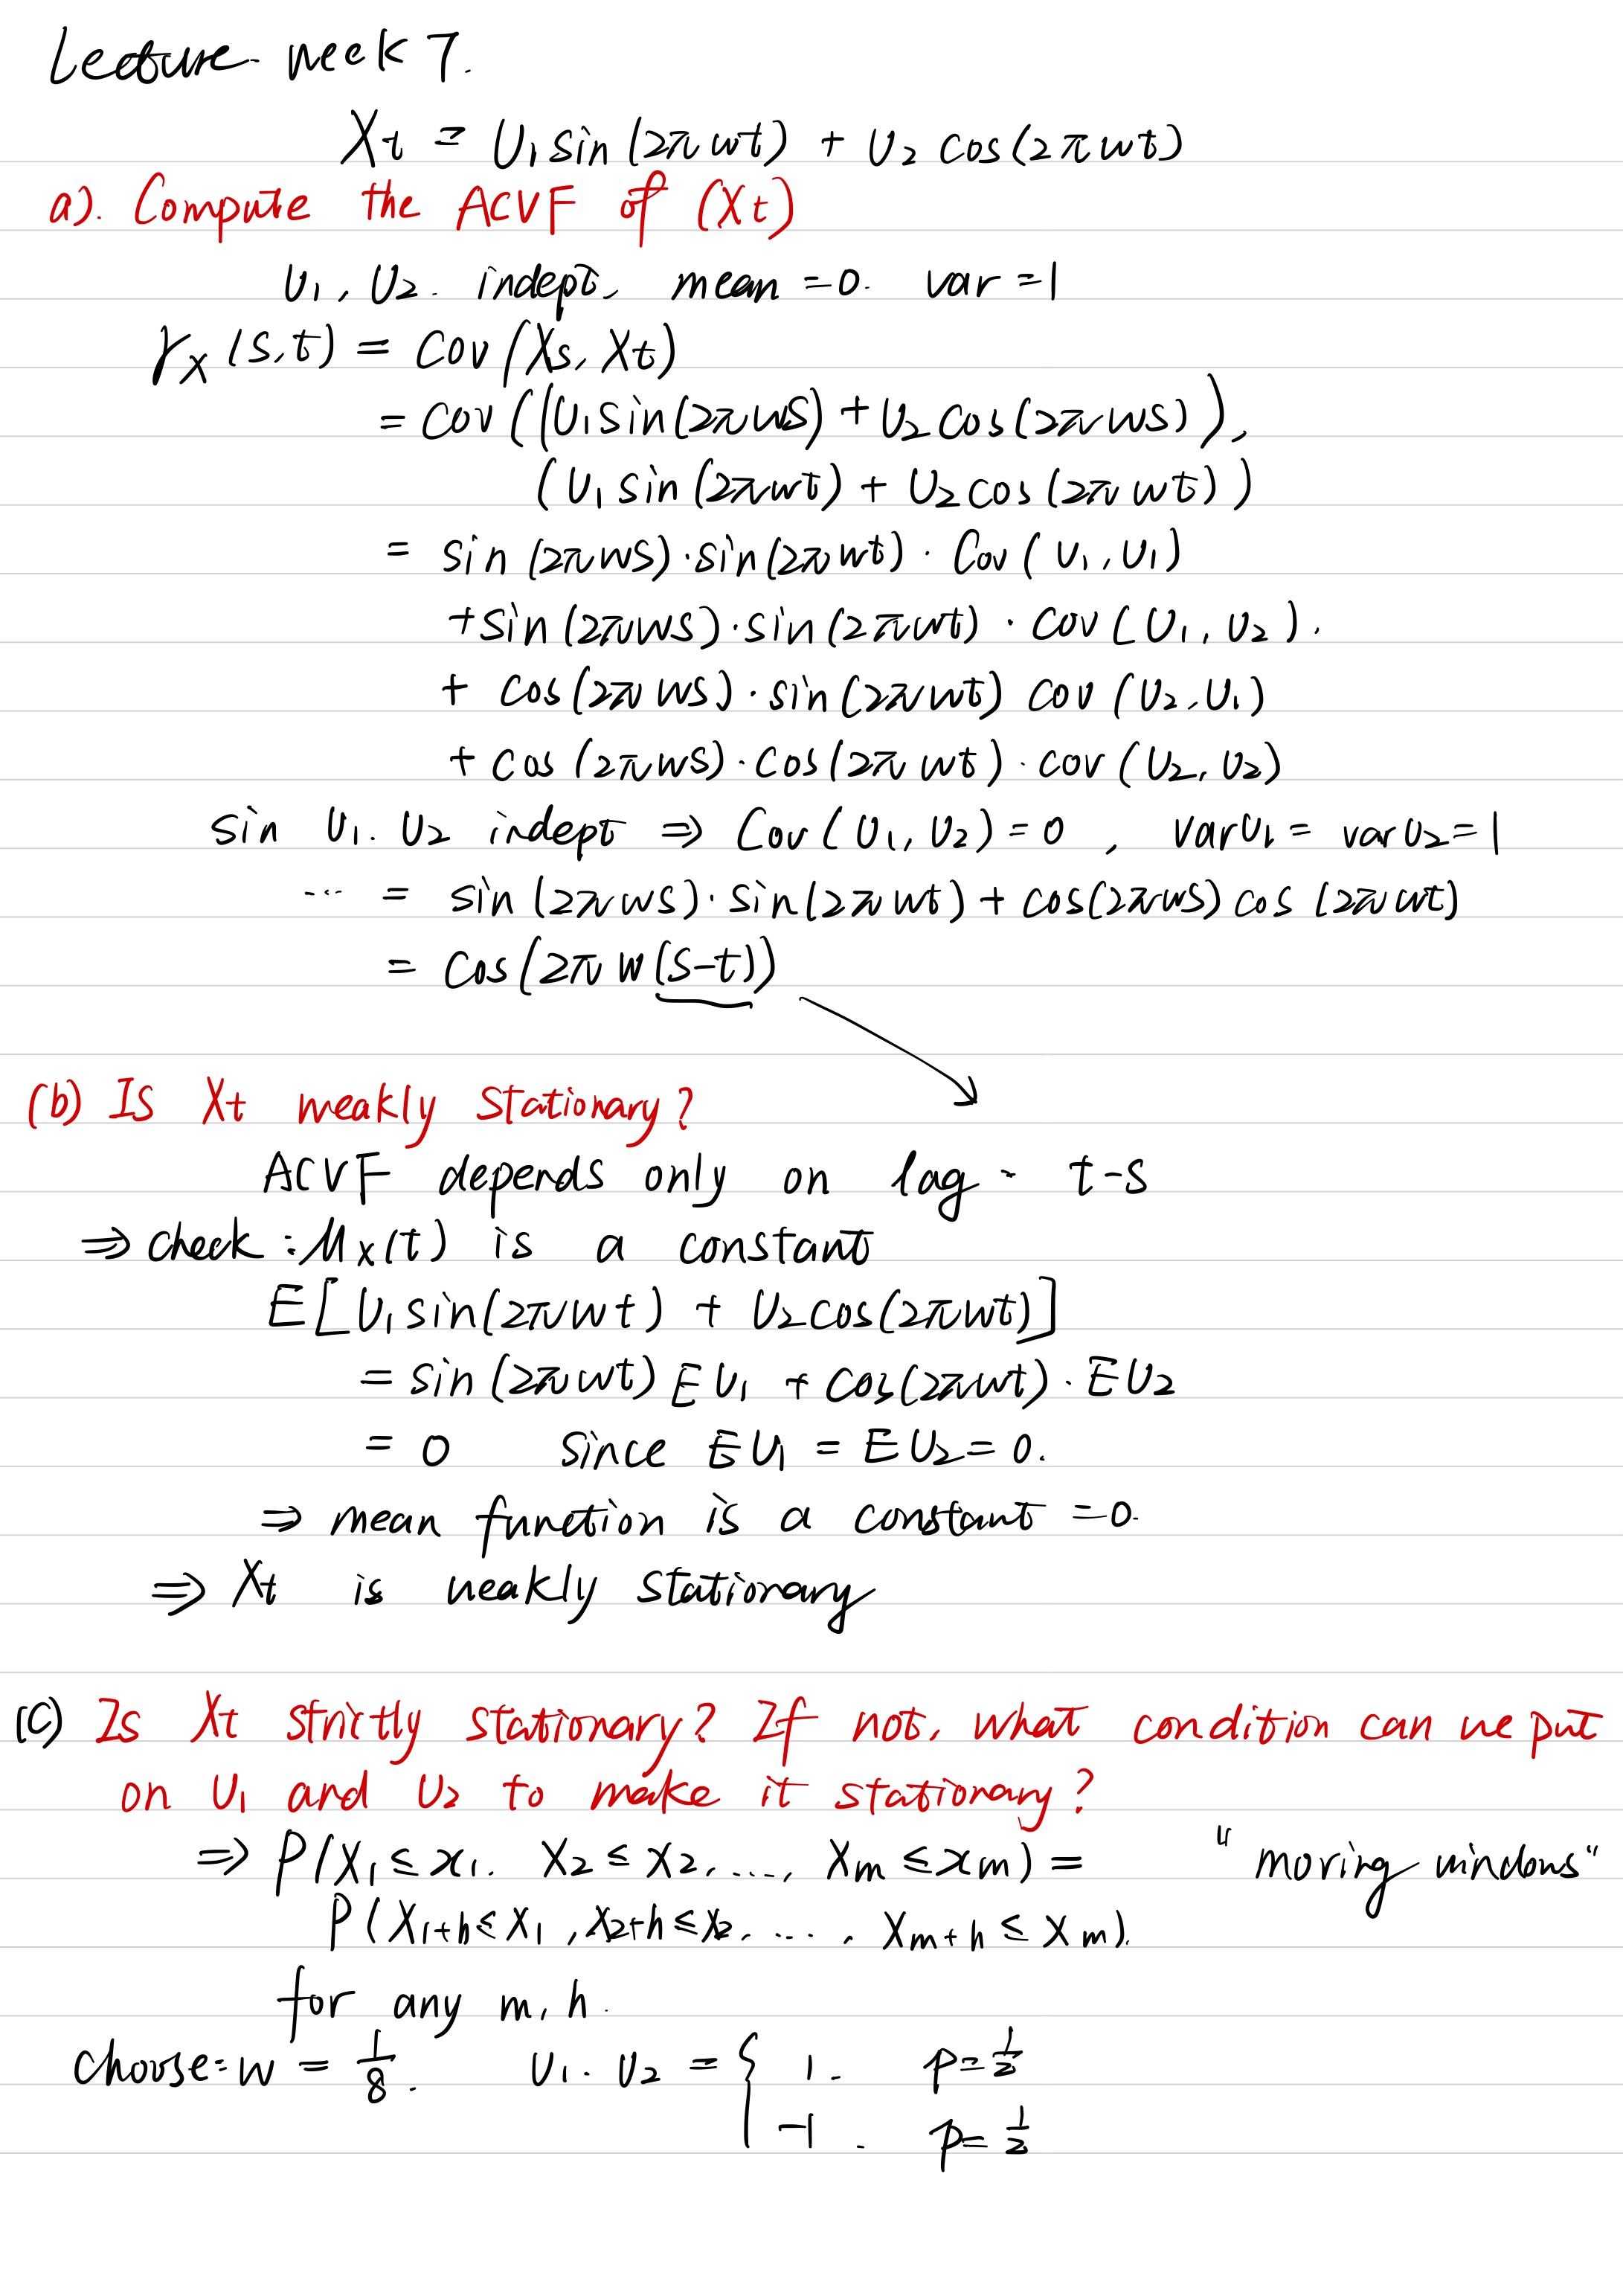 Lecture week 7.
Xt = U1 sin(2πwt) + U2 cos(2πwt)
a). Compute the ACVF of (Xt)
U1, U2. indept, mean =0. var =1
γX(s,t) = Cov(Xs, Xt)
= Cov((U1 sin(2πws) + U2 cos(2πws)),
(U1 sin(2πwt) + U2 cos(2πwt))
= sin(2πws)·sin(2πwt)·Cov(U1, U1)
+ sin(2πws)·sin(2πwt)·Cov(U1, U2).
+ cos(2πws)·sin(2πwt) cov(U2, U1)
+ cos(2πws)·cos(2πwt)·cov(U2, U2)
sin U1. U2 indept ⇒ Cov(U1, U2) = 0 , var U1 = var U2 = 1
... = sin(2πws)·sin(2πwt) + cos(2πws) cos(2πwt)
= cos(2πw(s-t))
(b) Is Xt weakly stationary?
ACVF depends only on lag - t-s
⇒ check: μX(t) is a constant
E[U1 sin(2πwt) + U2 cos(2πwt)]
= sin(2πwt) EU1 + cos(2πwt)·EU2
= 0 since EU1 = EU2 = 0.
⇒ mean function is a constant =0.
⇒ Xt is weakly stationary
(c) Is Xt strictly stationary? If not, what condition can we put
on U1 and U2 to make it stationary?
⇒ P(X1 ≤ x1. X2 ≤ x2, ..., Xm ≤ xm) = "moving windows"
P(X1+h ≤ x1, X2+h ≤ x2, ..., Xm+h ≤ xm).
for any m, h.
choose: w = 1/8. U1. U2 = { 1. p = 1/2
-1. p = 1/2